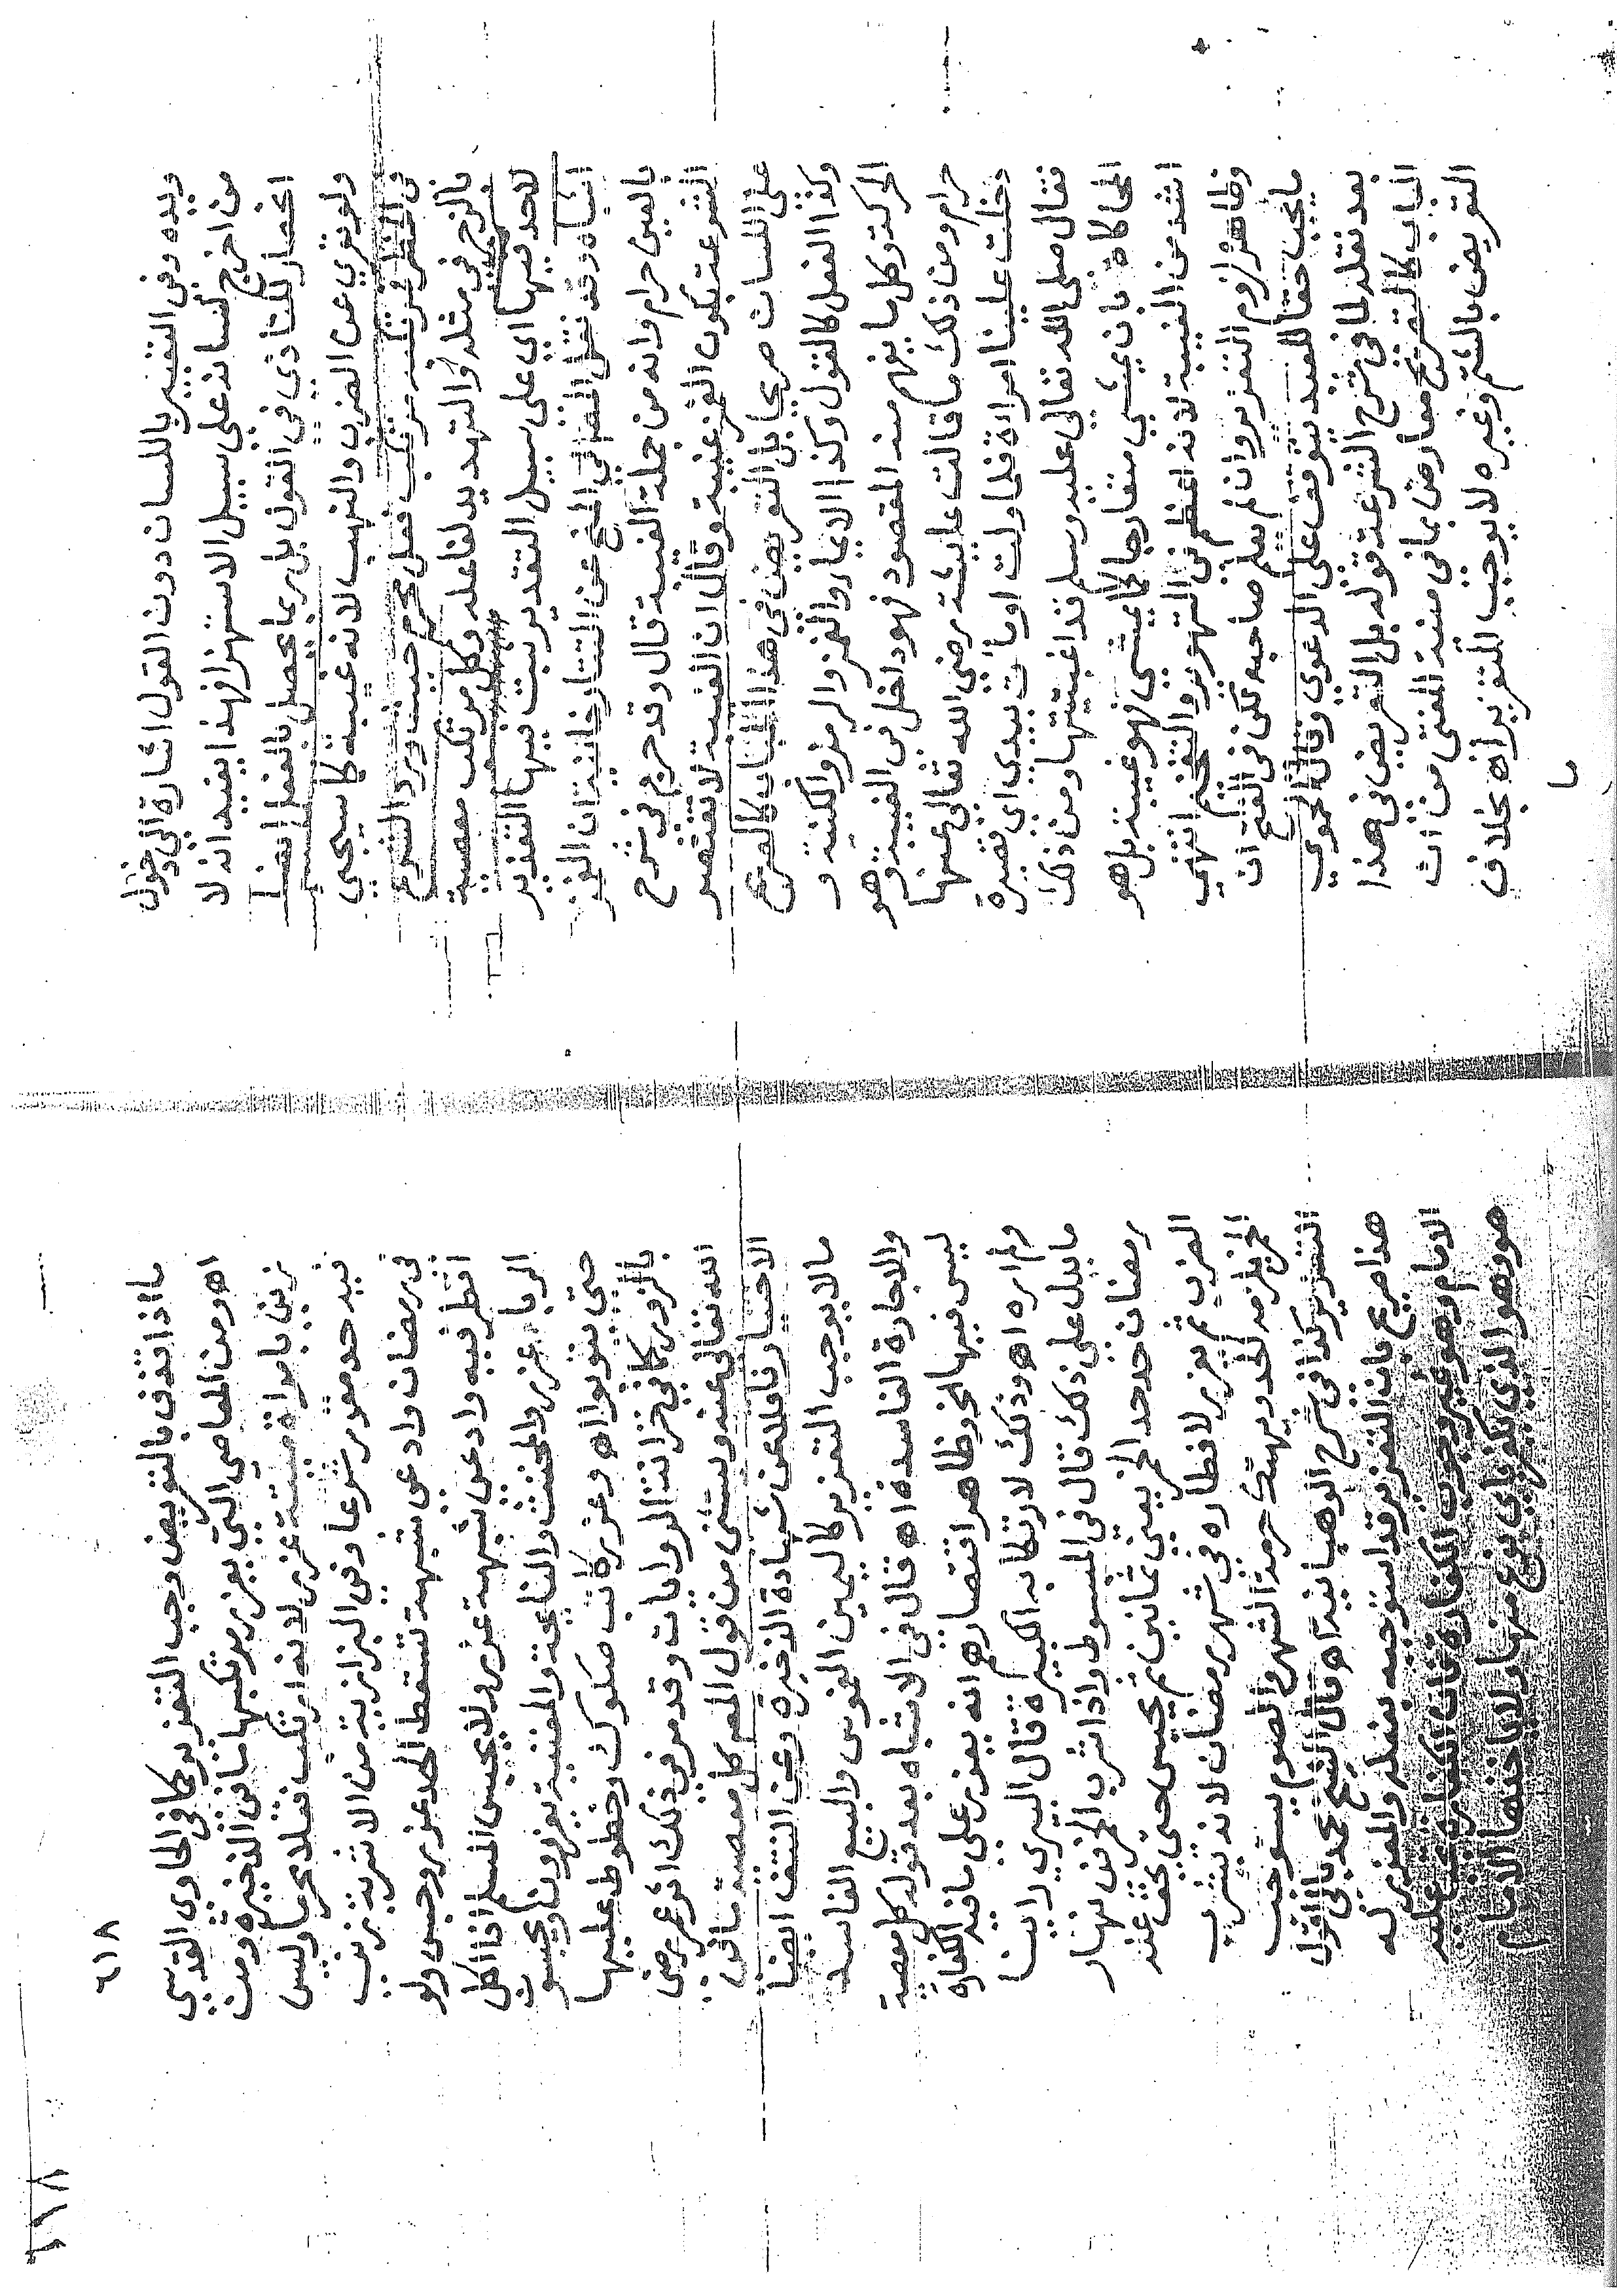 ويده وفي التعبير باللسان دون القول اشارة الى دخول
من اخرج لسانه على سبيل الاستهزا فهذا يفيد انه لا
انحصار للتاذي في القول بل ربما يحصل بالفعل ايضا
ولو تعري عن الضرب والنهب لانه غيبة كا سيجي
مرتكب فعل محرم حيث ورد الشرع
بالزجر في مثله والتهديد لفاعله وكل مرتكب معصية
لاحد فيها اي على سبيل التقدير يثبت فيها التعزير
اشباه وقد نقل الغزي في المنح عن التتارخانية ان الغمز
بالعين حرام وانه من جملة الغيبة قال وقد جزم في شرح
الشرعة بكون الغمز غيبة وقال ان الغيبة لا تقتصر
على اللسان صريحا بل التعريض في هذا الباب كالصريح
وكذا الفعل كالقول وكذا الايما والغمز والرمز والكتبة و
الحركة وكل ما يفهم منه المقصود فهو داخل في الغيبة وهو
حرام ومن ذلك ما قالت عايشة رضي الله تعالى عنها
دخلت علينا امراة فلما ولت اومات بيدي اي قصيرة
فقال صلى الله تعالى عليه وسلم قد اغتبتيها ومن ذلك
المحاكاة بان يمشي متعارجا كما يمشي فهو غيبة بل هو
اشد من الغيبة لانه اعظم في التهزير والتفخيم انتهى
وظاهره لزوم التعزير وان لم يعلم صاحبه لكن في الفتح ان
ما يجب حقا للعبد يتوقف على الدعوى وقال الحموي
بعد نقله لما في شرح الشرعة قوله بل التعريض في هذا
الباب كالتصريح معارض بما في منية المفتي من ان
التعريض بالشتم وغيره لا يوجب التعزير اه بخلاف
ما
٦١٨
ما اذا قذف بالتعريض وجب التعزير كما في الحاوي القدسي
اه ومن المعاصي التي يعزر مرتكبها ما في الذخيرة ومن
زنى بامراة ميتة عزر لانه ارتكب فعلا محرما وليس
فيه حد مقدر شرعا وفي البزازية من الاشربة زنى
في رمضان وادعى شبهة تسقط الحد عزر وحبس ولو
افطر فيه وادعى شبهة عزر ولا يحبس المسلم اذا اكل
الربا عزر والمخنث والنايحة والمغنية يعزرون ويحبسون
حتى يتوبوا اه وعزر كاتب صكوك وخطوط عليها
بالزور كما في خزانة الروايات وقد مر في ذلك اثر عمر رضى
الله تعالى عنه ويستثنى من قول المص كل معصية ما في
الاختيار ناقلا عن شهادة الذخيرة وعن النتف ايضا
ما لا يوجب التعزير كاليمين الغموس والبيع الفاسد
والاجارة الفاسدة اه قال في الاشباه بعد قوله كل معصية
ليس فيها الخ وظاهر اقتصارهم انه يعزر على ما فيه الكفارة
ولم اره اه وذلك لارتكابه الكبيرة قال البيري رايت
ما يدل على ذلك قال في المبسوط واذا شرب الخمر في نهار
رمضان حد حد الخمر يعني ثمانين ثم يحبس حتى يخف عنه
الضرب ثم يعزر لافطاره في شهر رمضان لان شرب
الخمر يلزمه الحد ويهتك حرمة الشهر والصوم يستوجب
التعزير كذا في شرح الوهبانية اه قال الشيخ محمد بالي اقول
هذا صريح بان التعزير قد استوجبه بفعله والمعزر له
الامام وهو غير وجوب الكفارة فان الكفارة تجب عليه
هو وهو الذي يكفر باي نوع منها ولا ياخذها الامام